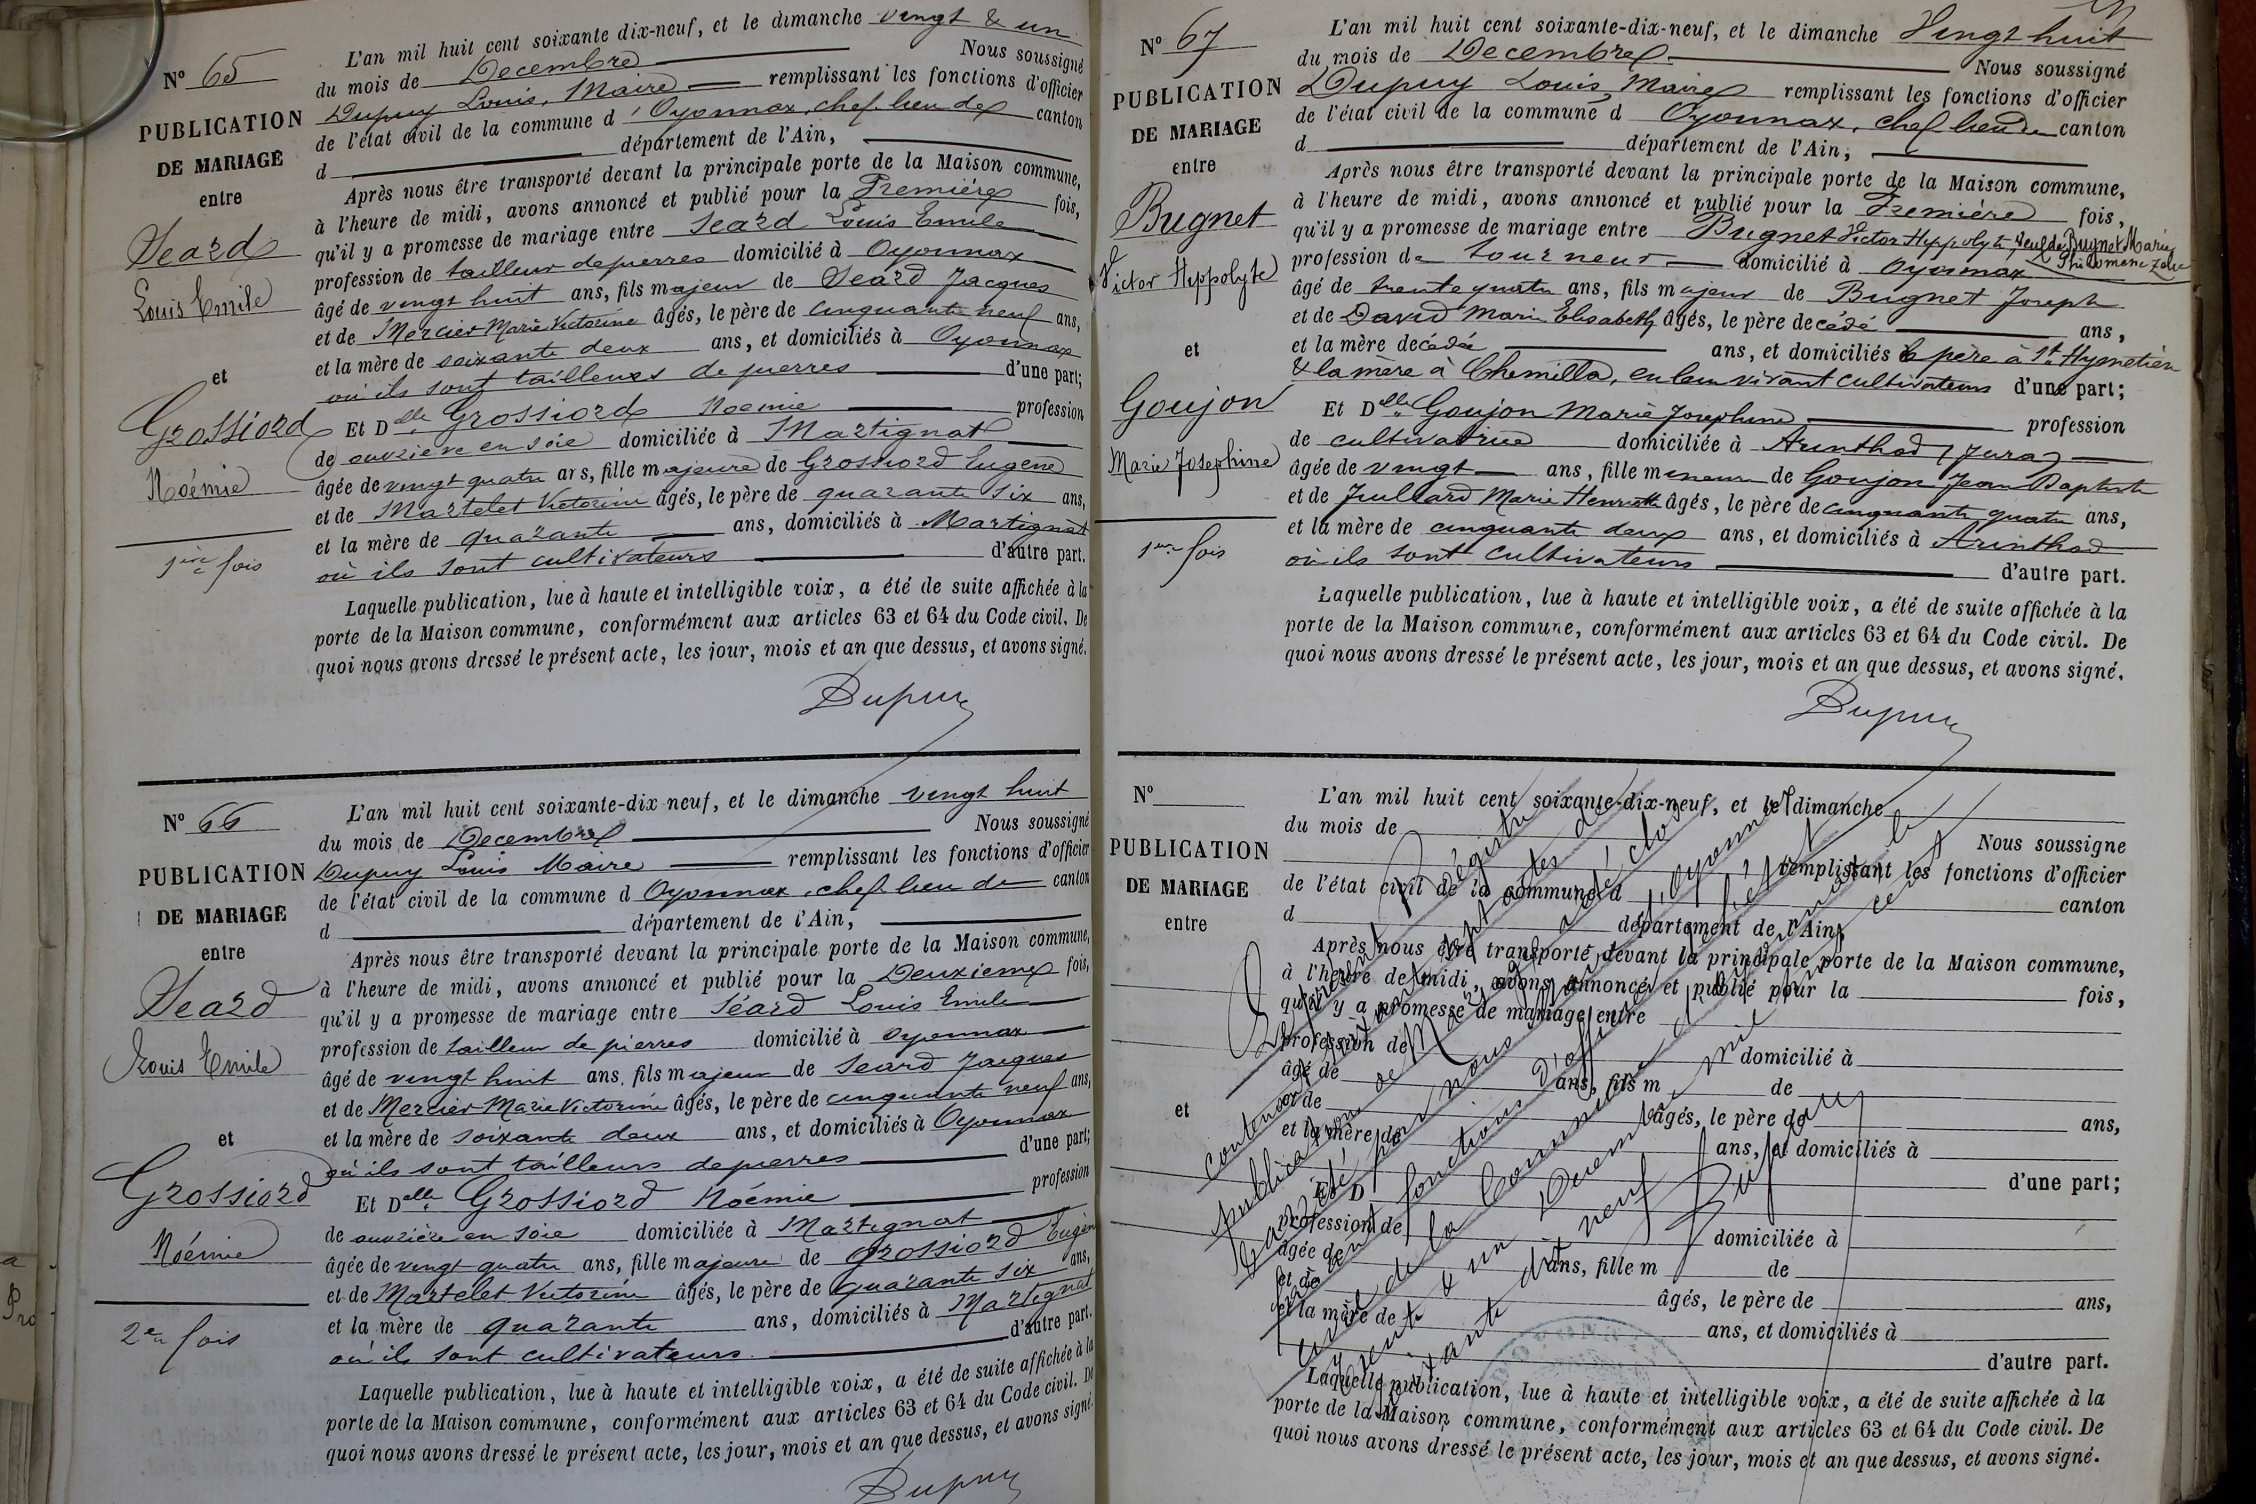 Nº 65
PUBLICATION
DE MARIAGE
entre
Seard
Louis Emile
et
Grossiord
Noémie
1ère fois
L'an mil huit cent soixante dix-neuf, et le dimanche vingt & un
du mois de Decembre Nous soussigné
Dupuy Louis, Maire remplissant les fonctions d'officier
de l'état civil de la commune d'Oyonnax, chef lieu de canton
d département de l'Ain,
Après nous être transporté devant la principale porte de la Maison commune,
à l'heure de midi, avons annoncé et publié pour la Première fois,
qu'il y a promesse de mariage entre Seard Louis Emile
profession de tailleur de pierres domicilié à Oyonnax
âgé de vingt huit ans, fils majeur de Seard Jacques
et de Mercier Marie Victorine âgés, le père de cinquante neuf ans,
et la mère de soixante deux ans, et domiciliés à Oyonnax
où ils sont tailleurs de pierres d'une part;
Et Delle Grossiord Noemie profession
de ouvrière en soie domiciliée à Martignat
âgée de vingt quatre ans, fille majeure de Grossiord Eugene
et de Martelet Victorine âgés, le père de quarante six ans,
et la mère de quarante ans, domiciliés à Martignat
où ils sont cultivateurs d'autre part.
Laquelle publication, lue à haute et intelligible voix, a été de suite affichée à la
porte de la Maison commune, conformément aux articles 63 et 64 du Code civil. De
quoi nous avons dressé le présent acte, les jour, mois et an que dessus, et avons signé.
Dupuy
Nº 66
PUBLICATION
DE MARIAGE
entre
Seard
Louis Emile
et
Grossiord
Noémie
2e fois
L'an mil huit cent soixante-dix neuf, et le dimanche vingt huit
du mois de Decembre Nous soussigné
Dupuy Louis Maire remplissant les fonctions d'officier
de l'état civil de la commune d Oyonnax, chef lieu de canton
d département de l'Ain,
Après nous être transporté devant la principale porte de la Maison commune,
à l'heure de midi, avons annoncé et publié pour la Deuxieme fois,
qu'il y a promesse de mariage entre Séard Louis Emile
profession de tailleur de pierres domicilié à Oyonnax
âgé de vingt huit ans, fils majeur de Seard Jacques
et de Mercier Marie Victorine âgés, le père de cinquante neuf ans,
et la mère de soixante deux ans, et domiciliés à Oyonnax
où ils sont tailleurs de pierres d'une part;
Et Delle Grossiord Noémie profession
de ouvrière en soie domiciliée à Martignat
âgée de vingt quatre ans, fille majeure de Grossiord Eugène
et de Martelet Victorine âgés, le père de quarante six ans,
et la mère de quarante ans, domiciliés à Martignat
où ils sont cultivateurs d'autre part.
Laquelle publication, lue à haute et intelligible voix, a été de suite affichée à la
porte de la Maison commune, conformément aux articles 63 et 64 du Code civil. De
quoi nous avons dressé le présent acte, les jour, mois et an que dessus, et avons signé.
Dupuy
Nº 67
PUBLICATION
DE MARIAGE
entre
Bugnet
Victor Hyppolyte
et
Goujon
Marie Josephine
1ere fois
L'an mil huit cent soixante-dix-neuf, et le dimanche Vingt huit
du mois de Decembre Nous soussigné
Dupuy Louis Maire remplissant les fonctions d'officier
de l'état civil de la commune d Oyonnax, chef lieu de canton
d département de l'Ain,
Après nous être transporté devant la principale porte de la Maison commune,
à l'heure de midi, avons annoncé et publié pour la Première fois,
qu'il y a promesse de mariage entre Bugnet Victor Hyppolyte, veuf de Bugnet Marie
Philomene Zelie
profession de tourneur domicilié à Oyonnax
âgé de trente quatre ans, fils majeur de Bugnet Joseph
et de David Marie Elisabeth âgés, le père décédé ans,
et la mère décédée ans, et domiciliés le père à St. Hymetière
& la mère à Chemilla, en leur vivant cultivateurs d'une part;
Et Delle Goujon Marie Josephine profession
de cultivatrice domiciliée à Arinthod (Jura)
âgée de vingt ans, fille mineure de Goujon Jean Baptiste
et de Juillard Marie Henriette âgés, le père de cinquante quatre ans,
et la mère de cinquante deux ans, et domiciliés à Arinthod
où ils sont cultivateurs d'autre part.
Laquelle publication, lue à haute et intelligible voix, a été de suite affichée à la
porte de la Maison commune, conformément aux articles 63 et 64 du Code civil. De
quoi nous avons dressé le présent acte, les jour, mois et an que dessus, et avons signé.
Dupuy
Nº
PUBLICATION
DE MARIAGE
entre
et
L'an mil huit cent soixante-dix-neuf, et le dimanche
du mois de
Nous soussigné
remplissant les fonctions d'officier
de l'état civil de la commune d
canton
d département de l'Ain,
Après nous être transporté devant la principale porte de la Maison commune,
à l'heure de midi, avons annoncé et publié pour la fois,
qu'il y a promesse de mariage entre
profession de domicilié à
âgé de ans, fils m de
et de âgés, le père de ans,
et la mère de ans, et domiciliés à
d'une part;
Et D
profession de domiciliée à
âgée de ans, fille m de
et de âgés, le père de ans,
et la mère de ans, et domiciliés à
d'autre part.
Laquelle publication, lue à haute et intelligible voix, a été de suite affichée à la
porte de la Maison commune, conformément aux articles 63 et 64 du Code civil. De
quoi nous avons dressé le présent acte, les jour, mois et an que dessus, et avons signé.
Le présent Régistre
contenant soixante sept actes de
publications de Mariage a été clos &
arrêté par nous
fonctions d'officier de l'état
civil de la Commune d'Oyonnax
trente & un Decembre mil huit cent
soixante dix neuf
Dupuy